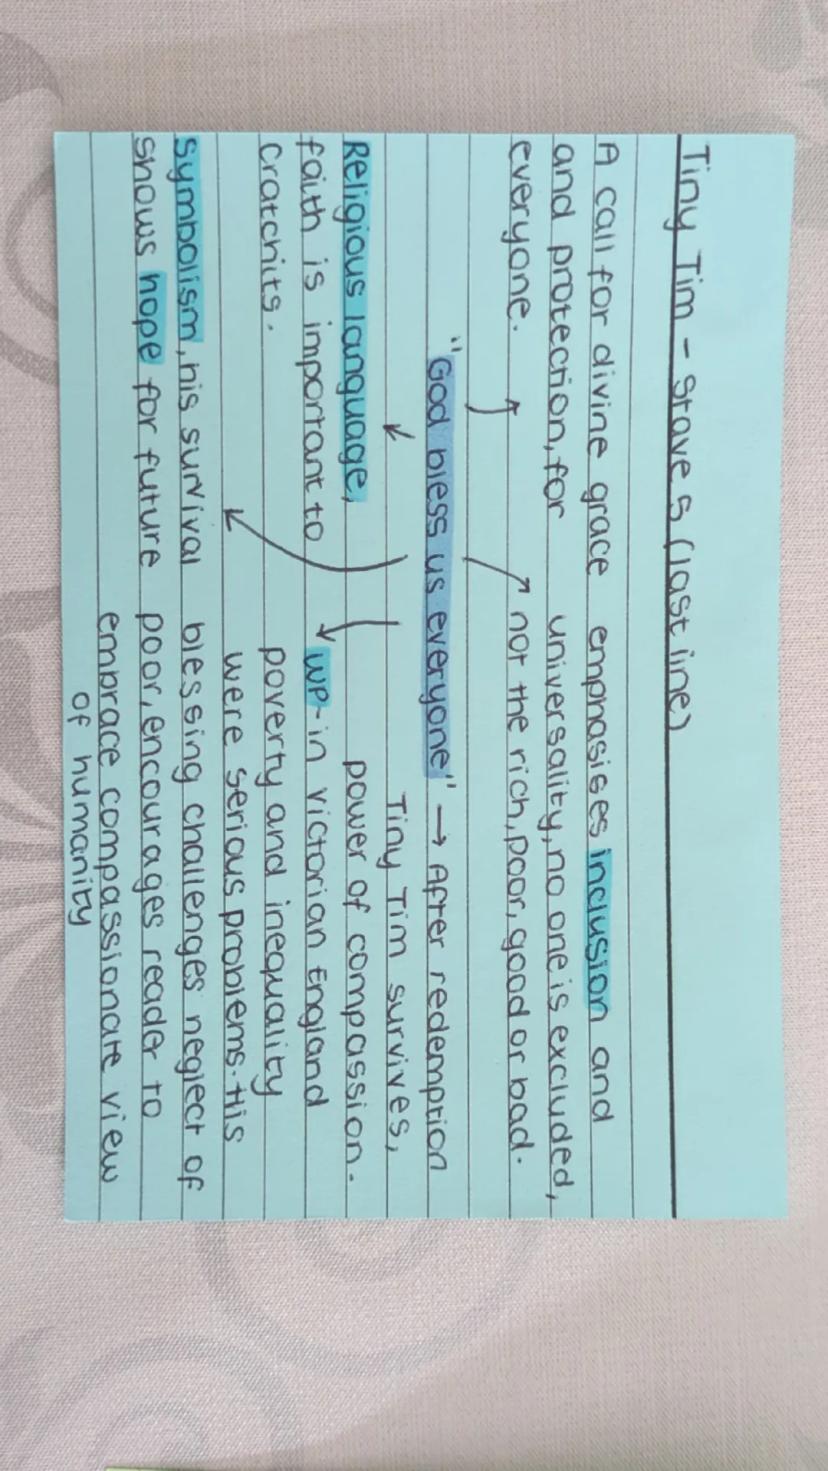 Tiny Tim - Stave 5 (last line)
A call for divine grace
and protection, for
everyone.
emphasises inclusion and
universality, no one is excluded,
not the rich, poor, good or bad.
"God bless us everyone" → After redemption
Tiny Tim survives,
power of compassion.
Religious language,
faith is important to
Cratchits.
Symbolism, his survival
shows hope for future
WP - in Victorian England
poverty and inequality
were serious problems. His
blessing challenges neglect of
poor, encourages reader to
embrace compassionate view
of humanity